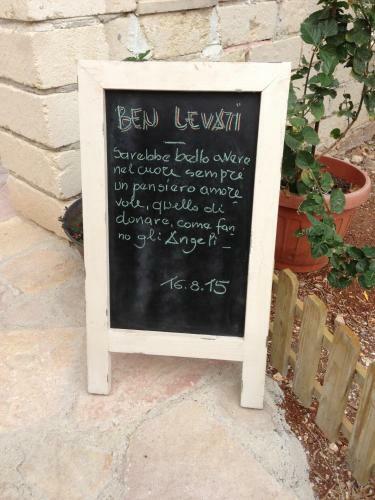 "BEN LEVATI"
Sarebbe bello avere
nel cuore sempre
un pensiero amore
vole, quello di
donare, come fan
no gli Angeli
16.8.15